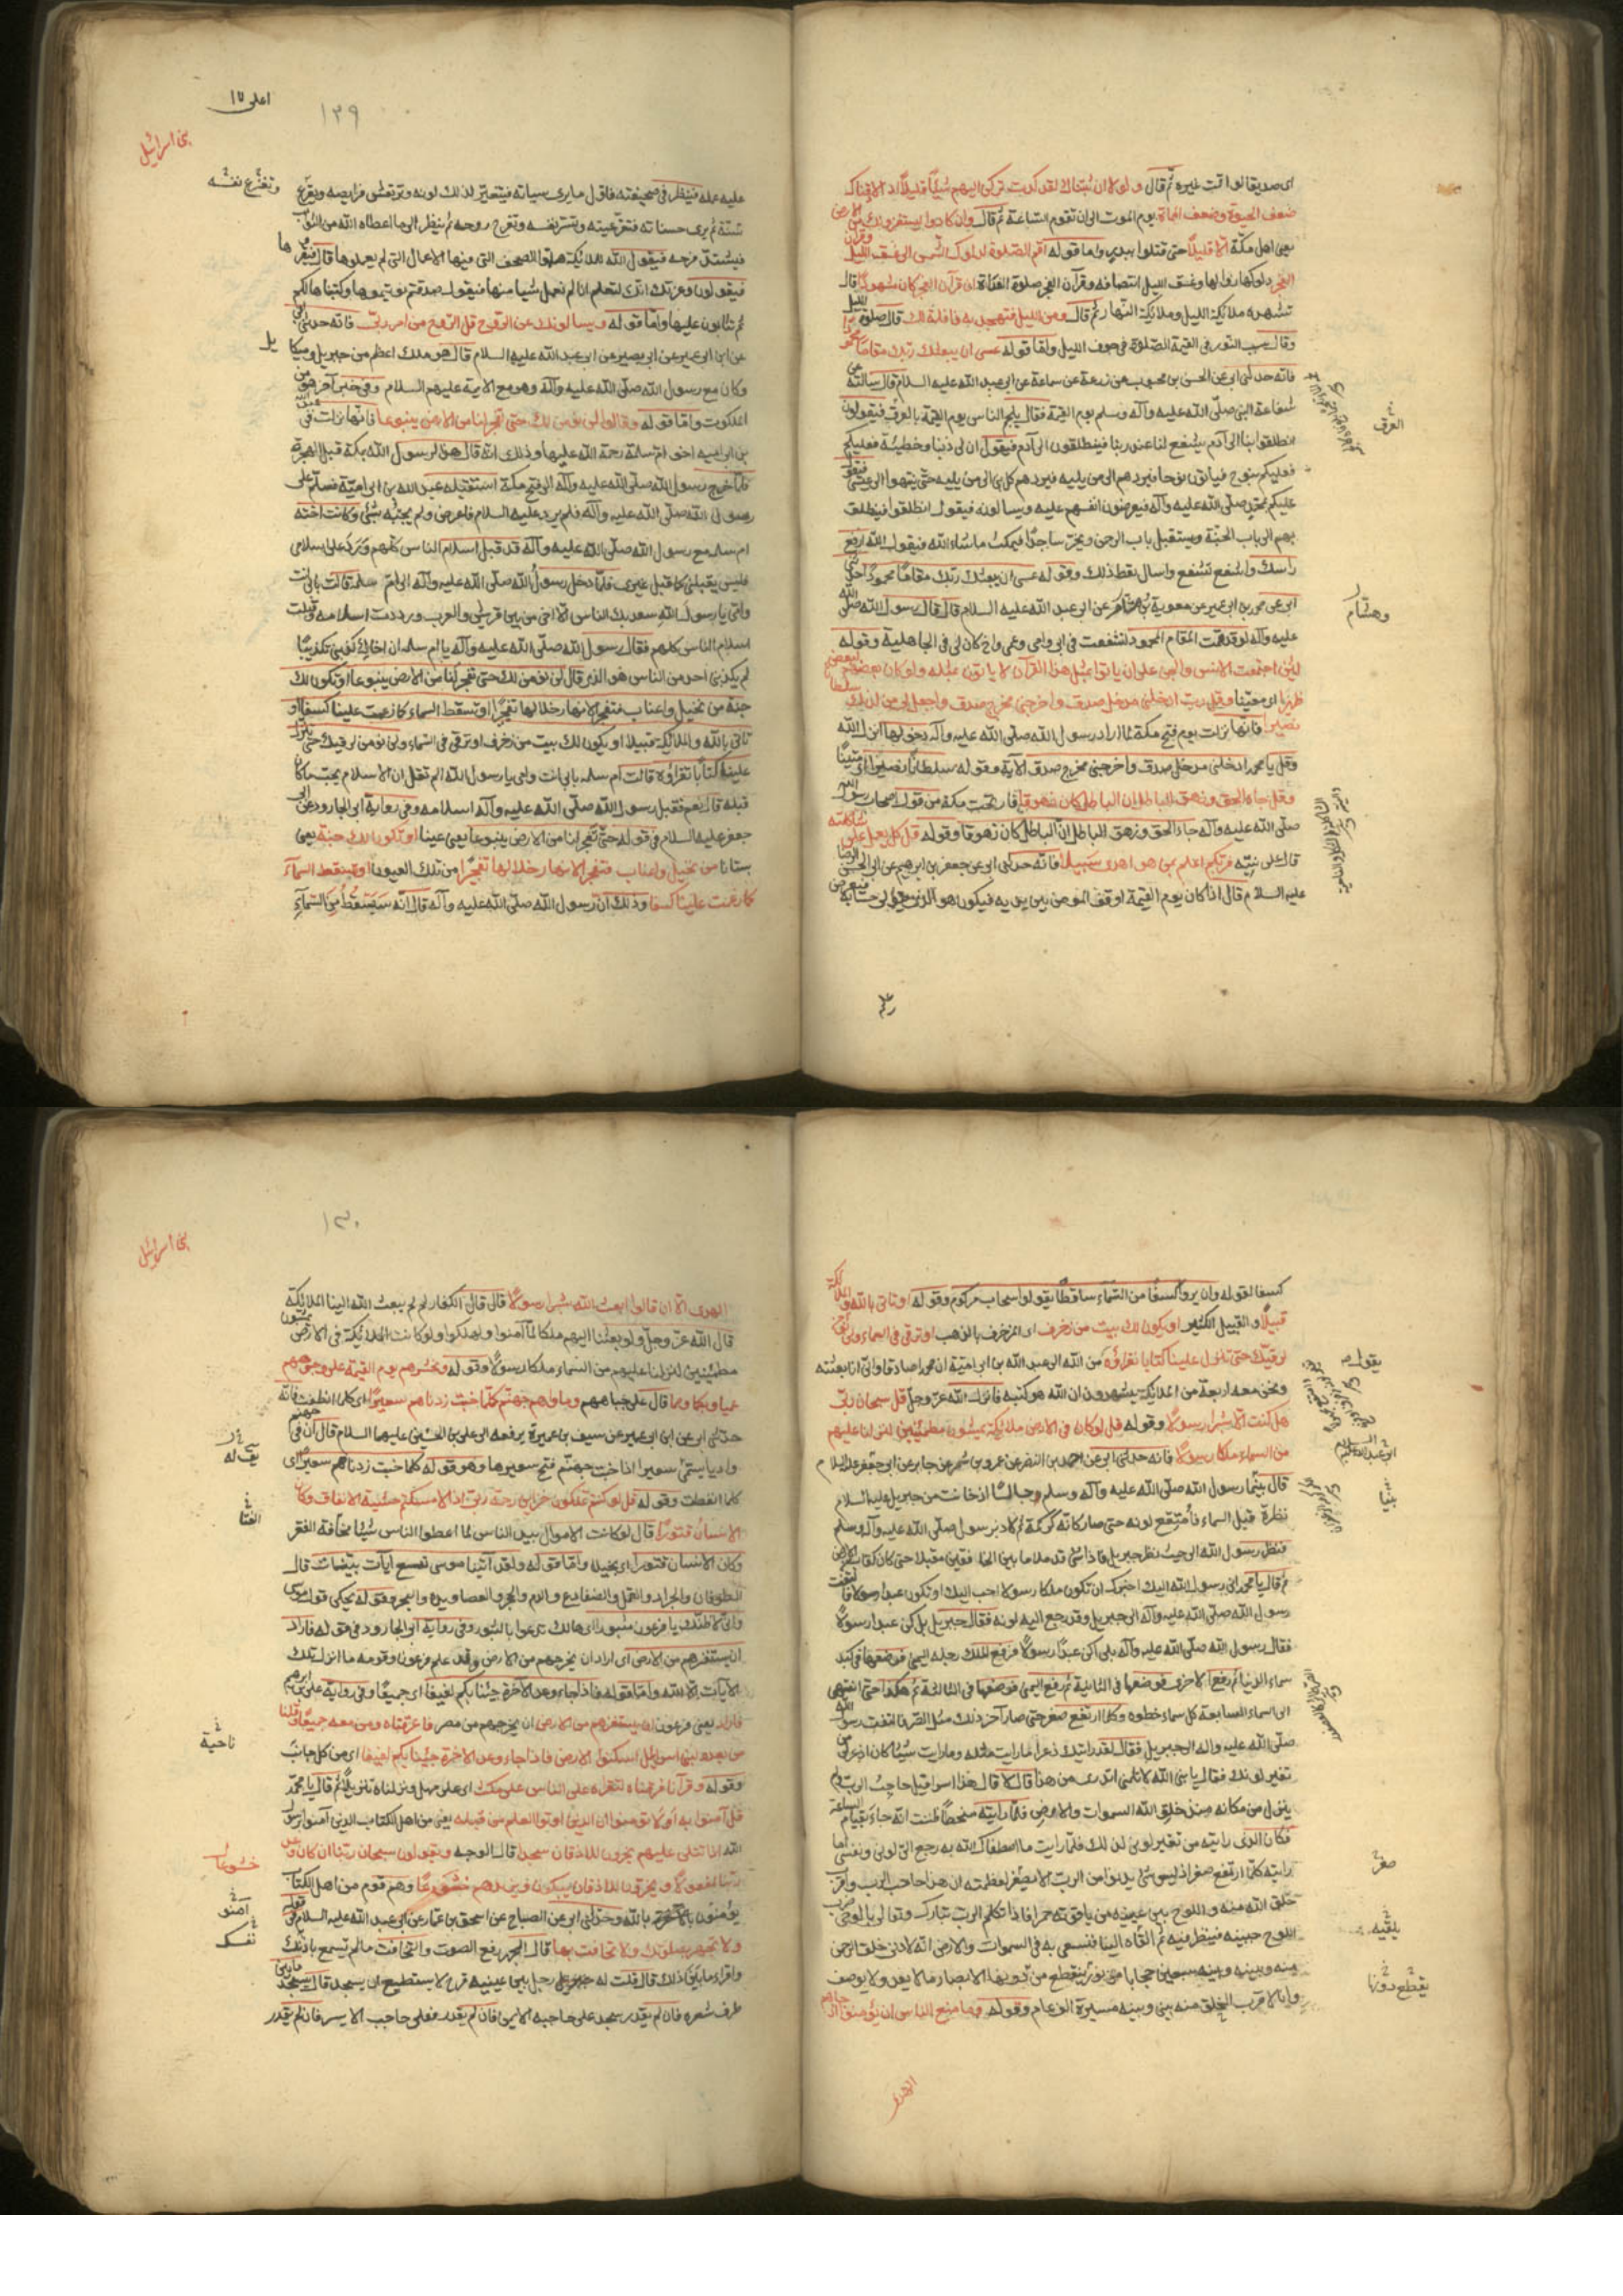 اى صديقا لو اقمت غيره ثم قال ولولا ان ثبتناك لقد كدت تركن اليهم شيئا قليلا اذا لاذقناك
ضعف الحيوة وضعف المماة يوم الموت الى ان تقوم الساعة ثم قال وان كادوا ليستفزونك من الارض
يعنى اهل مكة الا قليلا حتى قتلوا ببدر واما قوله اقم الصلوة لدلوك الشمس الى غسق الليل وقرآن
الفجر دلوكها زوالها وغسق الليل انتصافه وقرآن الفجر صلوة الغداة ان قرآن الفجر كان مشهودا قال
تشهده ملائكة الليل وملائكة النهار ثم قال ومن الليل فتهجد به نافلة لك قال صلوة الليل
وقال سبب النور فى القيمة الصلوة فى جوف الليل واما قوله عسى ان يبعثك ربك مقاما محمودا
فانه حدثنى ابى عن الحسن بن محبوب عن زرعة عن سماعة عن ابى عبد الله عليه السلام قال سالته عن
شفاعة النبى صلى الله عليه وآله وسلم يوم القيمة فقال يلجم الناس يوم القيمة بالعرق فيقولون
انطلقوا بنا الى آدم يشفع لنا عند ربنا فينطلقون الى آدم فيقول ان لى ذنبا وخطيئة فعليكم
فعليكم بنوح فياتون نوحا فيردهم الى من يليه فيردهم كل نبى الى من يليه حتى ينتهوا الى عيسى فيقول
عليكم بمحمد صلى الله عليه وآله فيعرضون انفسهم عليه ويسالونه فيقول انطلقوا فينطلق
بهم الى باب الجنة ويستقبل باب الرحمن ويخر ساجدا فيمكث ما شاء الله فيقول الله ارفع
راسك واشفع تشفع واسال تعط ذلك وقوله عسى ان يبعثك ربك مقاما محمودا حدثنى
ابى عن محمد بن ابى عمير عن معوية عن ابى عبد الله عليه السلام قال قال رسول الله صلى الله
عليه وآله لو قد قمت المقام المحمود لشفعت فى ابى وامى وعمى واخ كان لى فى الجاهلية وقوله
لئن اجتمعت الانس والجن على ان ياتوا بمثل هذا القرآن لا ياتون بمثله ولو كان بعضهم لبعض
ظهيرا اى معينا وقل رب ادخلنى مدخل صدق واخرجنى مخرج صدق واجعل لى من لدنك سلطانا
نصيرا فانها نزلت يوم فتح مكة لما اراد رسول الله صلى الله عليه وآله دخولها انزل الله
وقل يا محمد ادخلنى مدخل صدق واخرجنى مخرج صدق الآية وقوله سلطانا نصيرا اى معينا
وقل جاء الحق وزهق الباطل ان الباطل كان زهوقا فارتجت مكة من قول اصحاب رسول الله
صلى الله عليه وآله جاء الحق وزهق الباطل ان الباطل كان زهوقا وقوله قل كل يعمل على شاكلته
قال على نيته فربكم اعلم بمن هو اهدى سبيلا فانه حدثنى ابى عن جعفر بن ابرهيم عن ابى الحسن الرضا
عليه السلام قال اذا كان يوم القيمة اوقف المومن بين يديه فيكون هو الذى يتولى حسابه فيعرض
العرق
وهشام
اعلى ١٧
١٢٩
بنى اسرائيل
عليه عمله فينظر فى صحيفته فاول ما يرى سياته فيتغير لذلك لونه وترتعش فرايصه وتفزع
وتفزع نفسه
ثم يرى حسناته فتقر عينه وتسر نفسه وتفرح روحه ثم ينظر الى ما اعطاه الله من الثواب
فيشتد فرحه فيقول الله للملائكة هلموا الصحف التى فيها الاعمال التى لم يعملوها قال فيقرؤنها
فيقولون وعزتك انك لتعلم انا لم نعمل شيا منها فيقول صدقتم نويتموها وكتبناها لكم
ثم يثابون عليها واما قوله ويسالونك عن الروح قل الروح من امر ربى فانه حدثنى ابى
عن ابن ابى عمير عن ابى بصير عن ابى عبد الله عليه السلام قال هو ملك اعظم من جبريل وميكايل
وكان مع رسول الله صلى الله عليه وآله وهو مع الايمة عليهم السلام وفى خبر آخر هو من
الملكوت واما قوله وقالوا لن نومن لك حتى تفجر لنا من الارض ينبوعا فانها نزلت فى عبد الله
بن ابى اميه اخو ام سلمة رحمة الله عليها وذلك انه قال هذا لرسول الله بمكة قبل الهجرة
فلما خرج رسول الله صلى الله عليه وآله الى فتح مكة استقبله عبد الله بن ابى امية فسلم على
رسول الله صلى الله عليه وآله فلم يرد عليه السلام فاعرض ولم يجبه بشئ وكانت اخته
ام سلمه مع رسول الله صلى الله عليه وآله قد قبل اسلام الناس كلهم ورد على اسلامى
فليس يقبلنى كما قبل غيرى فلما دخل رسول الله صلى الله عليه وآله الى ام سلمة قالت بابى انت
وامى يا رسول الله سعد بك الناس الا اخى من بين قريش والعرب ورددت اسلامه وقبلت
اسلام الناس كلهم فقال رسول الله صلى الله عليه وآله يا ام سلمه ان اخاك كذبنى تكذيبا
لم يكذبنى احد من الناس هو الذى قال لى لن نومن لك حتى تفجر لنا من الارض ينبوعا او تكون لك
جنة من نخيل واعناب فتفجر الانهار خلالها تفجيرا او تسقط السماء كما زعمت علينا كسفا او
تاتى بالله والملائكة قبيلا او يكون لك بيت من زخرف او ترقى فى السماء ولن نومن لرقيك حتى تنزل
علينا كتابا نقراؤه قالت ام سلمه بابى انت وامى يا رسول الله الم تقل ان الاسلام يجب ما كان
قبله قال نعم فقبل رسول الله صلى الله عليه وآله اسلامه وفى رواية ابى الجارود عن ابى
جعفر عليه السلام فى قوله حتى تفجر لنا من الارض ينبوعا يعنى عينا او تكون لك جنة يعنى
بستانا من نخيل واعناب فتفجر الانهار خلالها تفجيرا من تلك العيون او تسقط السماء
كما زعمت علينا كسفا وذلك ان رسول الله صلى الله عليه وآله قال انه سيسقط من السماء
كسفا لقوله وان يروا كسفا من السماء ساقطا يقولوا سحاب مركوم وقوله او تاتى بالله والملائكة
قبيلا والقبيل الكثير او يكون لك بيت من زخرف اى المزخرف بالذهب او ترقى فى السماء ولن نومن
لرقيك حتى تنزل علينا كتابا نقراؤه من الله الى عبد الله بن ابى امية ان محمدا صادق وانى انا بعثته
ويجئ معه اربعة من الملائكة يشهدون ان الله هو كتبه فانزل الله عز وجل قل سبحان ربى
هل كنت الا بشرا رسولا وقوله قل لو كان فى الارض ملائكة يمشون مطمئنين لنزلنا عليهم
من السماء ملكا رسولا فانه حدثنى ابى عن احمد بن النضر عن عمرو بن شمر عن جابر عن ابى جعفر عليه السلام
قال بينما رسول الله صلى الله عليه وآله وسلم جالسا اذ حانت من جبريل عليه السلام
نظرة قبل السماء فامتقع لونه حتى صار كانه كركمة ثم لاذ برسول صلى الله عليه وآله وسلم
فنظر رسول الله الى حيث نظر جبريل فاذا شئ قد ملا ما بين الخافقين مقبلا حتى كان كقاب الارض
ثم قال يا محمد انى رسول الله اليك اخيرك ان تكون ملكا رسولا احب اليك او تكون عبدا رسولا فالتفت
رسول الله صلى الله عليه وآله الى جبريل وقد رجع اليه لونه فقال جبريل بل كن عبدا رسولا
فقال رسول الله صلى الله عليه وآله بلى اكن عبدا رسولا فرفع الملك رجله اليمنى فوضعها فى كبد
سماء الدنيا ثم رفع الاخرى فوضعها فى الثانية ثم رفع اليمنى فوضعها فى الثالثة ثم هكذا حتى انتهى
الى السماء السابعة كل سماء خطوه وكلما ارتفع صغر حتى صار آخر ذلك مثل الصر فالتفت رسول الله
صلى الله عليه وآله الى جبريل فقال لقد رايتك ذعرا ما رايت مثله وما رايت شيئا كان اذعر لى من
تغير لونك فقال يا نبى الله لا تلمنى اتدرى من هذا قال لا قال هذا اسرافيل حاجب الرب ولم
ينزل من مكانه منذ خلق الله السموات والارض فلما رايته منحطا ظننت انه جاء بقيام الساعة
فكان الذى رايته من تغير لونى لذلك فلما رايت ما اصطفاك الله به رجع الى لونى ونفسى اما
رايته كلما ارتفع صغر اذ ليس شئ يدنوا من الرب الا يصغر لعظمته ان هذا حاجب الرب واقرب
خلق الله منه واللوح بين عينيه من ياقوته حمرا فاذا تكلم الرب تبارك وتعالى بالوحى ضرب
اللوح جبينه فينظر فيه ثم القاه الينا فنسعى به فى السموات والارض انه لادنى خلق الرحمن
منه وبينه وبينه سبعين حجابا من نور ينقطع من دونها الابصار ما لا يعد ولا يوصف
وانا لاقرب الخلق منه بينى وبينه مسيرة الف عام وقوله وما منع الناس ان يؤمنوا اذ جاءهم
الهدى
يقول
ابو عبد الله عليه السلام
بينا
صغر
يلقيه
يقطع دونها
١٣٠
بنى اسرائيل
الهدى الا ان قالوا ابعث الله بشرا رسولا قال قال الكفار لم لم يبعث الله الينا الملائكة
قال الله عز وجل ولو بعثنا اليهم ملكا لما آمنوا ولهلكوا ولو كانت الملائكة فى الارض يمشون
مطمئنين لنزلنا عليهم من السماء ملكا رسولا وقوله ونحشرهم يوم القيمة على وجوههم
عميا وبكما وصما قال على جباههم وماواهم جهنم كلما خبت زدناهم سعيرا اى كلما انطفت فانه
حدثنى ابى عن ابن ابى عمير عن سيف بن عميرة يرفعه الى على بن الحسين عليهما السلام قال ان فى جهنم
واديا يسمى سعيرا اذا خبت جهنم فتح سعيرها وهو قوله كلما خبت زدناهم سعيرا اى
كلما انطفت وقوله قل لو انتم تملكون خزاين رحمة ربى اذا لامسكتم خشية الانفاق وكان
الانسان قتورا قال لو كانت الاموال بيد الناس لما اعطوا الناس شيئا مخافة الفقر
وكان الانسان قتورا اى بخيلا واما قوله ولقد آتينا موسى تسع آيات بينات قال
الطوفان والجراد والقمل والضفادع والدم والحجر والعصا ويده والبحر وقوله يحكى قول موسى
وانى لاظنك يا فرعون مثبورا اى هالك تدعوا بالثبور وفى رواية ابى الجارود فى قوله فاراد
ان يستفزهم من الارض اى اراد ان يخرجهم من الارض وقد علم فرعون وقومه ما انزل تلك
الآيات الا الله واما قوله فاذا جاء وعد الآخرة جئنا بكم لفيفا اى جميعا وفى رواية على بن ابرهيم
فاراد يعنى فرعون ان يستفزهم من الارض ان يخرجهم من مصر فاغرقناه ومن معه جميعا وقلنا
من بعده لبنى اسرائيل اسكنوا الارض فاذا جاء وعد الاخرة جئنا بكم لفيفا اى من كل جانب
وقوله وقرآنا فرقناه لتقراه على الناس على مكث اى على مهل ونزلناه تنزيلا ثم قال يا محمد
قل آمنوا به او لا تؤمنوا ان الذين اوتوا العلم من قبله يعنى من اهل الكتاب الذين آمنوا برسول
الله اذا تتلى عليهم يخرون للاذقان سجدا قال الوجه ويقولون سبحان ربنا ان كان وعد
ربنا لمفعولا ويخرون للاذقان يبكون ويزيدهم خشوعا وهم قوم من اهل الكتاب
يؤمنون بالله وحدثنى ابى عن الصباح عن اسحق بن عمار عن ابى عبد الله عليه السلام فى قوله
ولا تجهر بصلوتك ولا تخافت بها قال الجهر رفع الصوت والتخافت ما لم تسمع باذنك
واقراء ما بين ذلك قال قلت له رجل بين عينيه قرح لا يستطيع ان يسجد قال يسجد ما بين
طرف شعره فان لم يقدر سجد على حاجبه الايمن فان لم يقدر فعلى حاجب الايسر فان لم يقدر
ناحية
خشوعا
آمنوا
نفسك